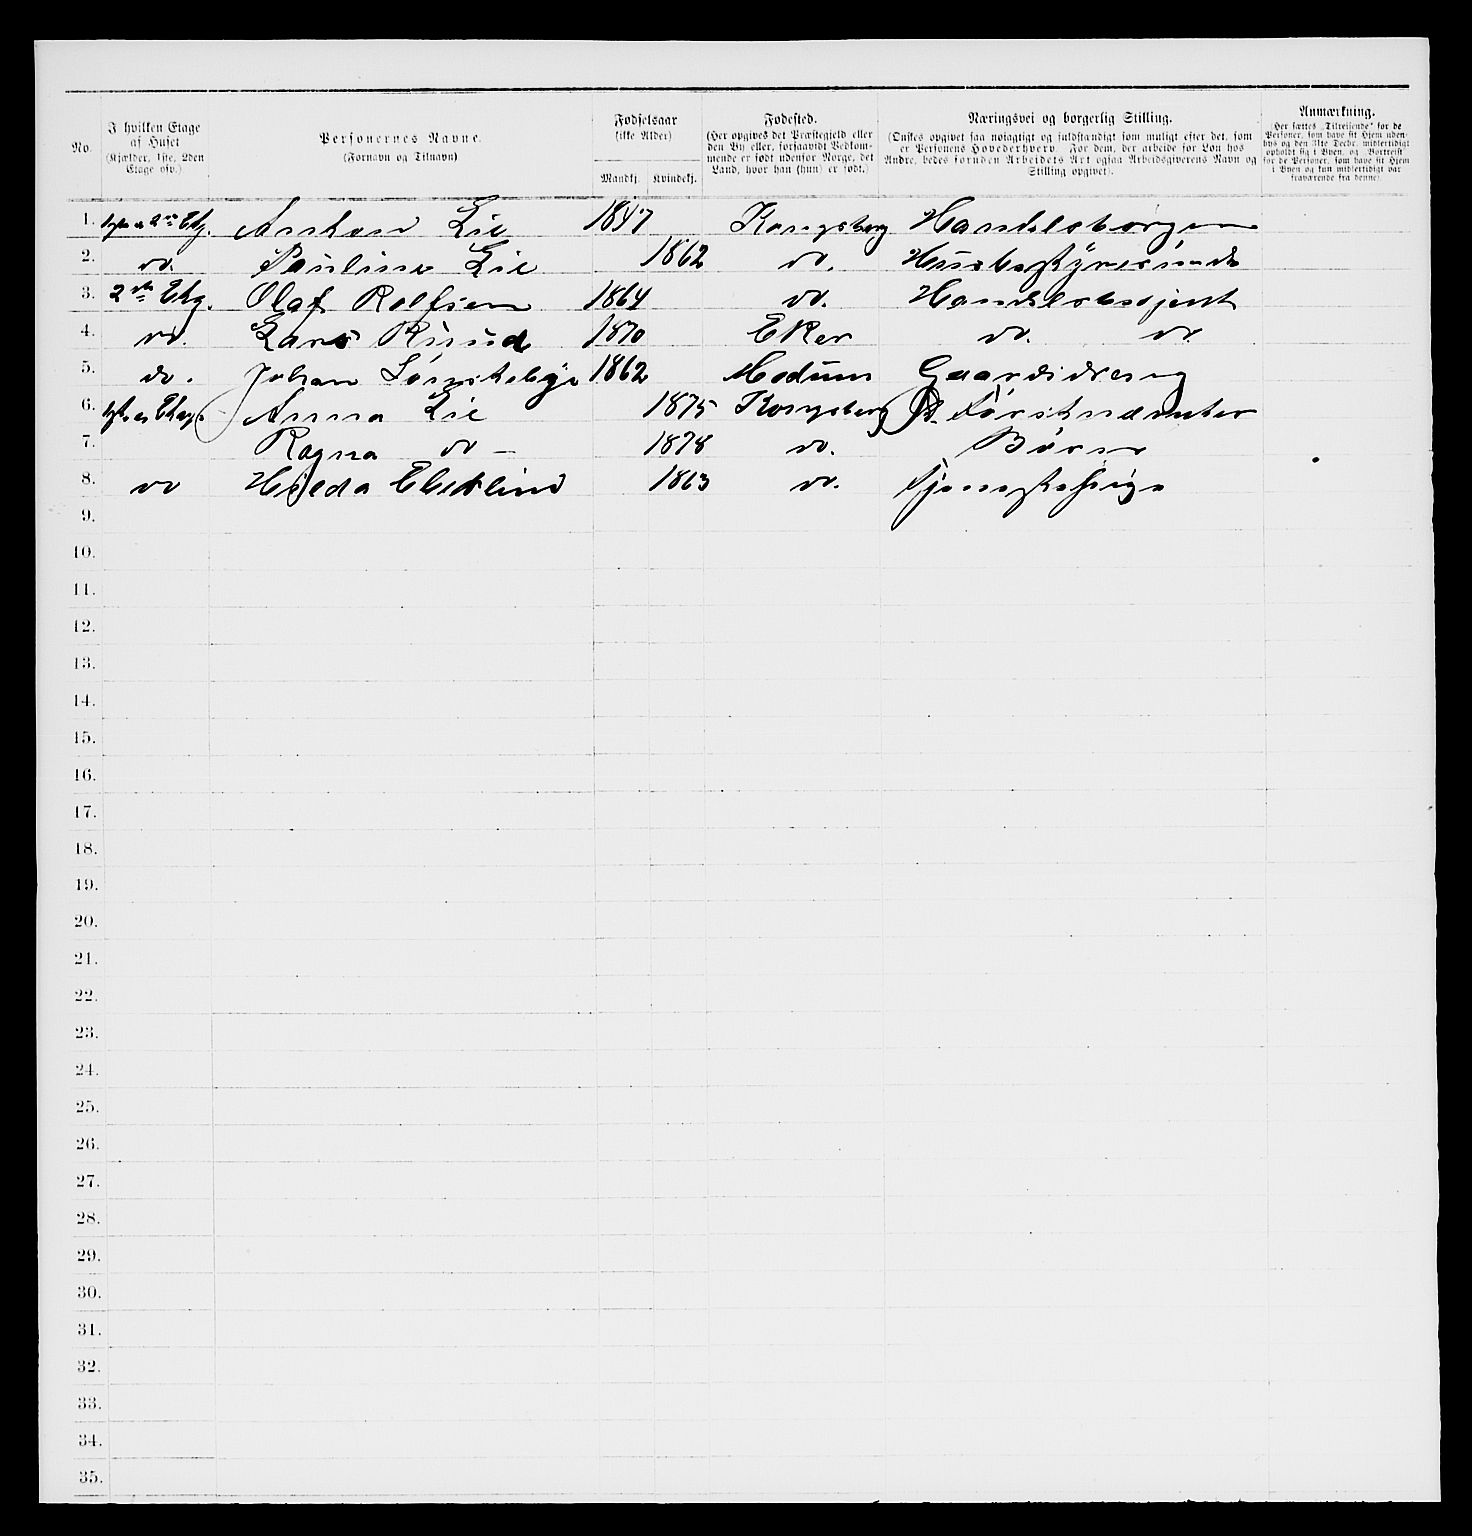 No.
I hvilken Etage af Huset (Kjælder, 1ste, 2den Etage osv.)
Personernes Navne.
(Fornavn og Tilnavn)
Fødselsaar
(ikke Alder)
Mandkj. Kvindekj.
Fødested.
(Her opgives det Præstegjeld eller den By eller, forsaavidt Vedkommende er født udenfor Norge, det Land, hvor han (hun) er født.)
Næringsvei og borgerlig Stilling.
(Ønskes opgivet saa nøiagtigt og fuldstændigt som muligt efter det, som er Personens Hovederhverv. For dem, der arbeide for Løn hos Andre, bedes foruden Arbeidets Art ogsaa Arbeidsgiverens Navn og Stilling opgivet).
Anmærkning.
(Her sættes „Tilreisende" for de Personer, som have sit Hjem udenbys og den 31te Decbr. midlertidigt opholdt sig i Byen, og „Bortreist" for de Personer, som have sit Hjem i Byen og kun midlertidigt var fraværende fra denne).
1. 2den Etg. Anthon Lie 1847 Kongsberg Handelsborger
2. do. Pauline Lie 1862 do.
3. 2den Etg. Olaf Rolfsen 1864 do. Handelsbetjent
4. do. Lars Ruud 1870 Eker do. do
5. do. Johan 1862 Modum Gaardsdreng
6. Anna Lie 1875 Kongsberg
7. Ragna do – 1878 do. Børn
8. do Hilda 1863 do. Tjenestepige
9.
10.
11.
12.
13.
14.
15.
16.
17.
18.
19.
20.
21.
22.
23.
24.
25.
26.
27.
28.
29.
30.
31.
32.
33.
34.
35.